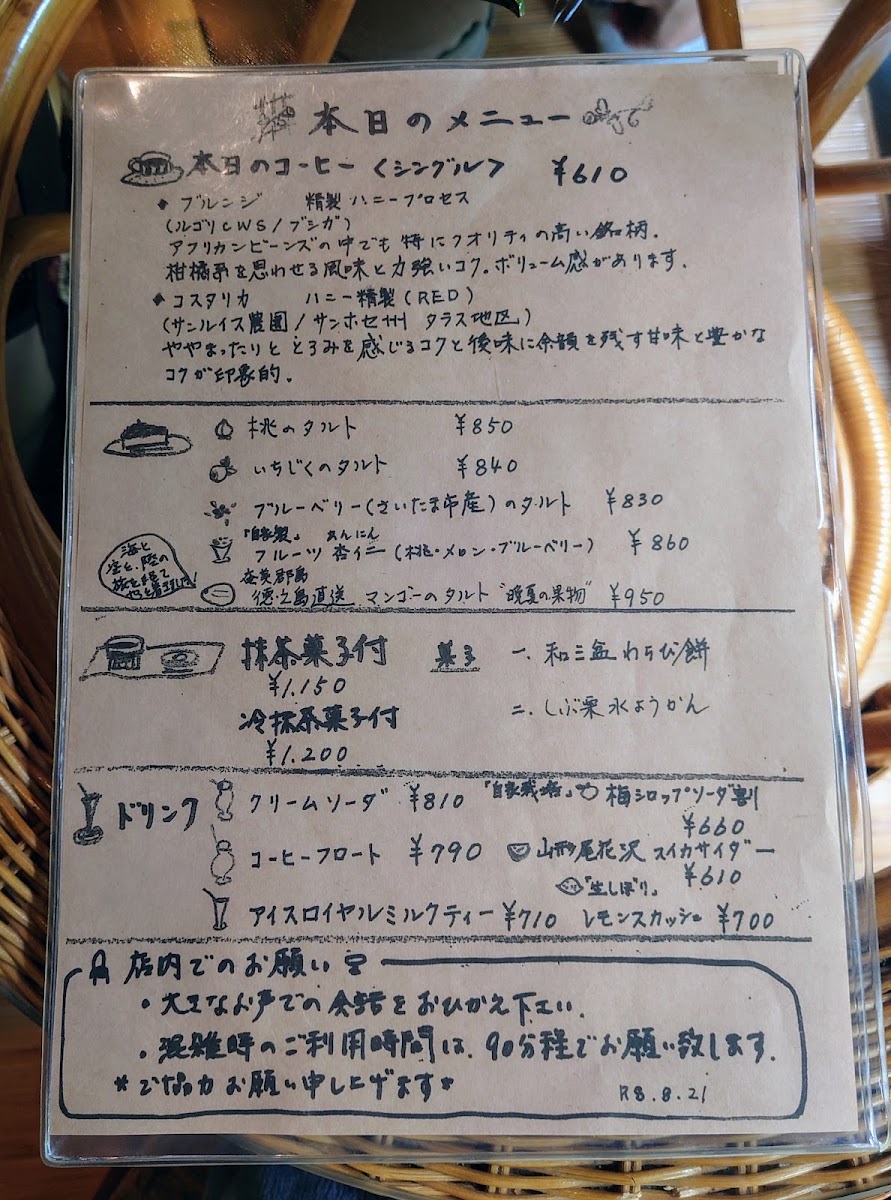 本日のメニュー
本日のコーヒー〈シングル〉 ¥610
◆ブルンジ 精製ハニープロセス
(ルゴリCWS/ブシガ)
アフリカンビーンズの中でも特にクオリティの高い銘柄。
柑橘系を思わせる風味と力強いコク。ボリューム感があります。
◆コスタリカ ハニー精製(RED)
(サンルイス農園/サンホセ州 タラス地区)
ややまったりととろみを感じるコクと後味に余韻を残す甘味と豊かな
コクが印象的。
桃のタルト ¥850
いちじくのタルト ¥840
ブルーベリー(さいたま市産)のタルト ¥830
「自家製」 あんにん
フルーツ杏仁(桃・メロン・ブルーベリー) ¥860
海と
空と、陸の
旅を経て
やっと着きました!
奄美郡島
徳之島直送 マンゴーのタルト "晩夏の果物" ¥950
抹茶菓子付 菓子 一、和三盆わらび餅
¥1.150
冷抹茶菓子付 二、しぶ栗水ようかん
¥1.200
ドリンク
クリームソーダ ¥810 「自家栽培」梅シロップソーダ割
¥660
コーヒーフロート ¥790 山形尾花沢 スイカサイダー
¥610
「生しぼり」
アイスロイヤルミルクティー ¥710 レモンスカッシュ ¥700
店内でのお願い
・大きなお声での会話をおひかえ下さい。
・混雑時のご利用時間は、90分程でお願い致します。
*ご協力お願い申し上げます*
R8.8.21